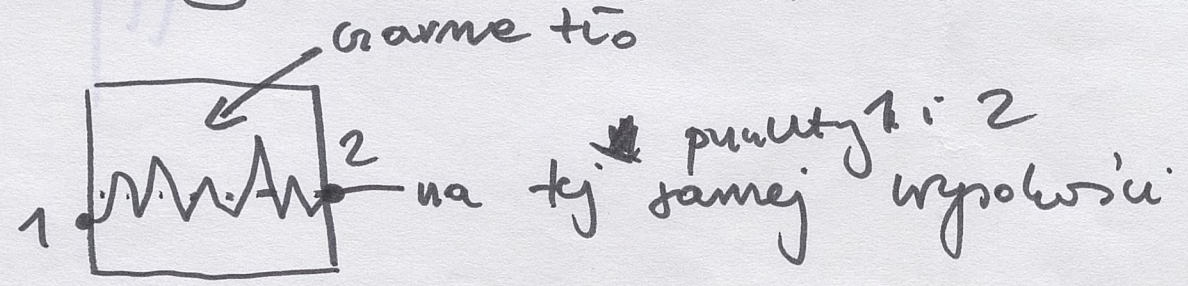 czarne tło
punkty 1 i 2
2
1
na tej samej wysokości